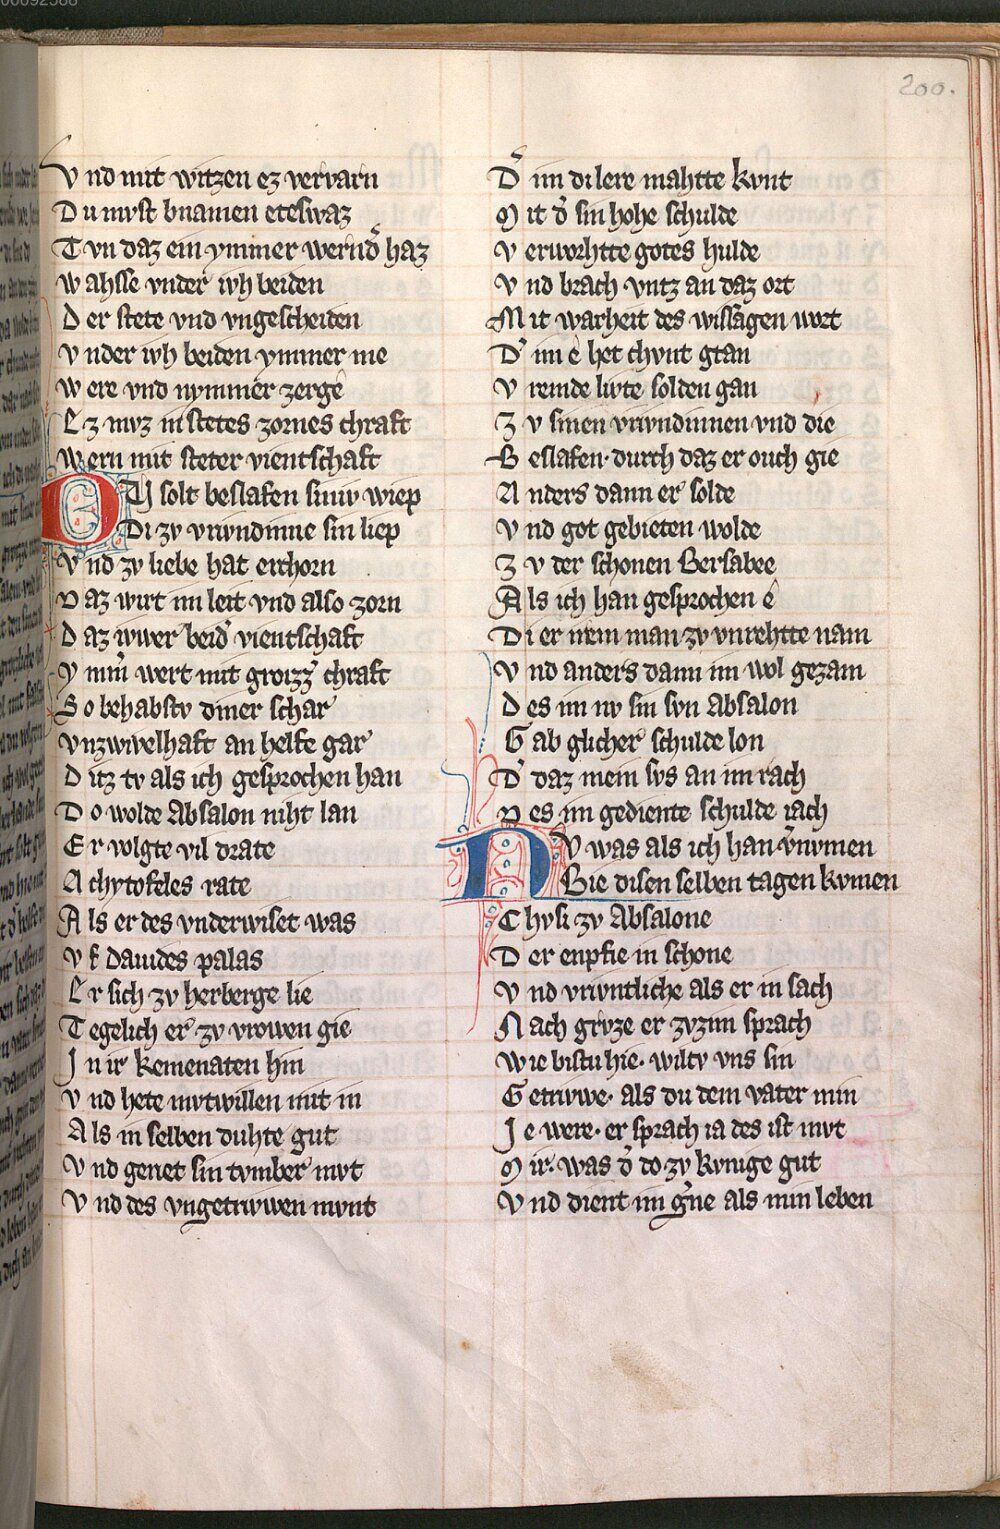 200.
Vnd mit witzen ez vervarn
Du mvst bnamen eteswaz
Tvn daz ein ymmer wernd haz
Wahsse vnder iwh beiden
Der stete vnd vngescheiden
Vnder iwh beiden ymmer me
Were vnd nymmer zerge
Ez mvz in stetes zornes chraft
Wern mit steter vientschaft
DV solt beslafen siniv wiep
Di zv vrivndinne sin liep
Vnd zv liebe hat erchorn
Daz wirt im leit vnd also zorn
Daz iwer beid vientschaft
Ymm wert mit grozz chraft
So behabstv diner schar
Vnzwivelhaft an helfe gar
Ditz tv als ich gesprochen han
Do wolde Absalon niht lan
Er volgte vil drate
Achytofeles rate
Als er des vnderwiset was
Vf dauides palas
Er sich zv herberge lie
Tegelich er zv vrowen gie
In ir kemenaten hin
Vnd hete mvtwillen mit in
Als in selben duhte gut
Vnd genet sin tvmber mvt
Vnd des vngetriwen mvnt
D im di lere mahtte kvnt
Mit d sin hohe schulde
Verworhtte gotes hulde
Vnd brach vntz an daz ort
Mit warheit des wissagen wort
D im ê het chvnt gtan
Vremde livte solden gan
Zv sinen vrivndinnen vnd die
Beslafen· durch daz er ouch gie
Anders dann er solde
Vnd got gebieten wolde
Zv der schonen Bersabee
Als ich han gesprochen ê
Di er irem man zv vnrehtte nam
Vnd anders dann im wol gezam
Des im nv sin svn Absalon
Gab glicher schulde lon
D daz mein svs an im rach
Des im gediente schulde iach
NV was als ich han vnvmen
Bie disen selben tagen kvmen
Chvsi zv Absalone
Der enpfie in schone
Vnd vrivntliche als er in sach
Nach grvze er zvzim sprach
Wie bistu hie· wiltv vns sin
Getriwe· als du dem vater min
Ie were· er sprach ia des ist mvt
Mir· was d do zv kvnige gut
Vnd dient im gne als min leben